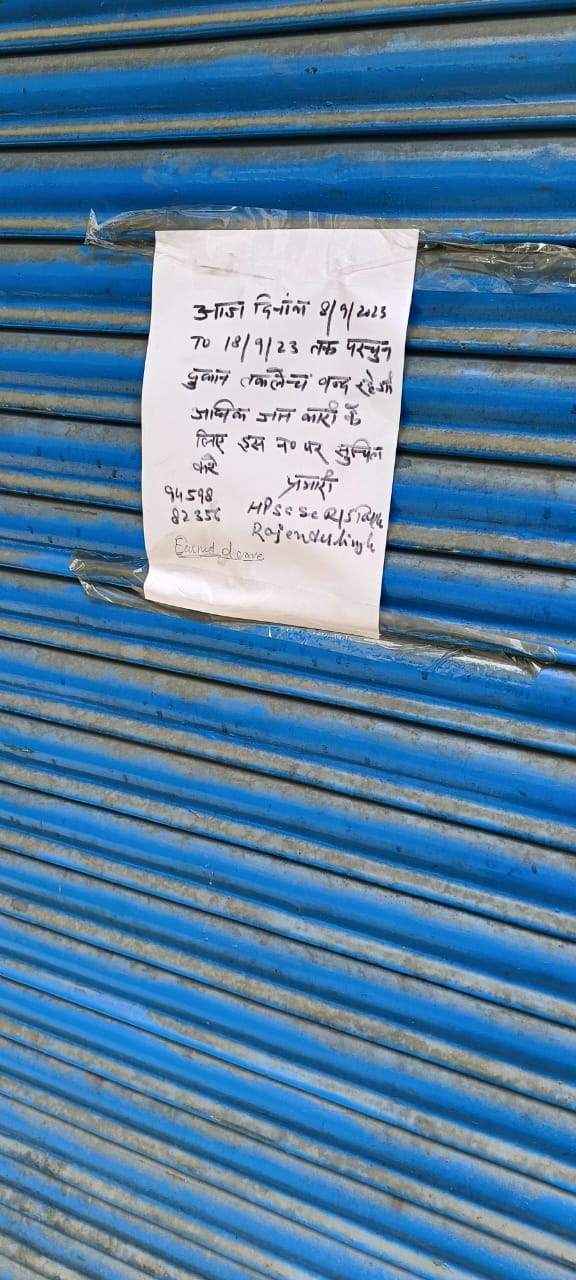 आज दिनांक 8/9/2023
TO 18/9/23 तक परचुन
दुकान तकलेच बन्द रहेगी
अधिक जान कारी के
लिए इस न० पर सुचित
करे
प्रभारी
94598
82356
HPSCSC R/S
Rajender Singh
Earned Leave